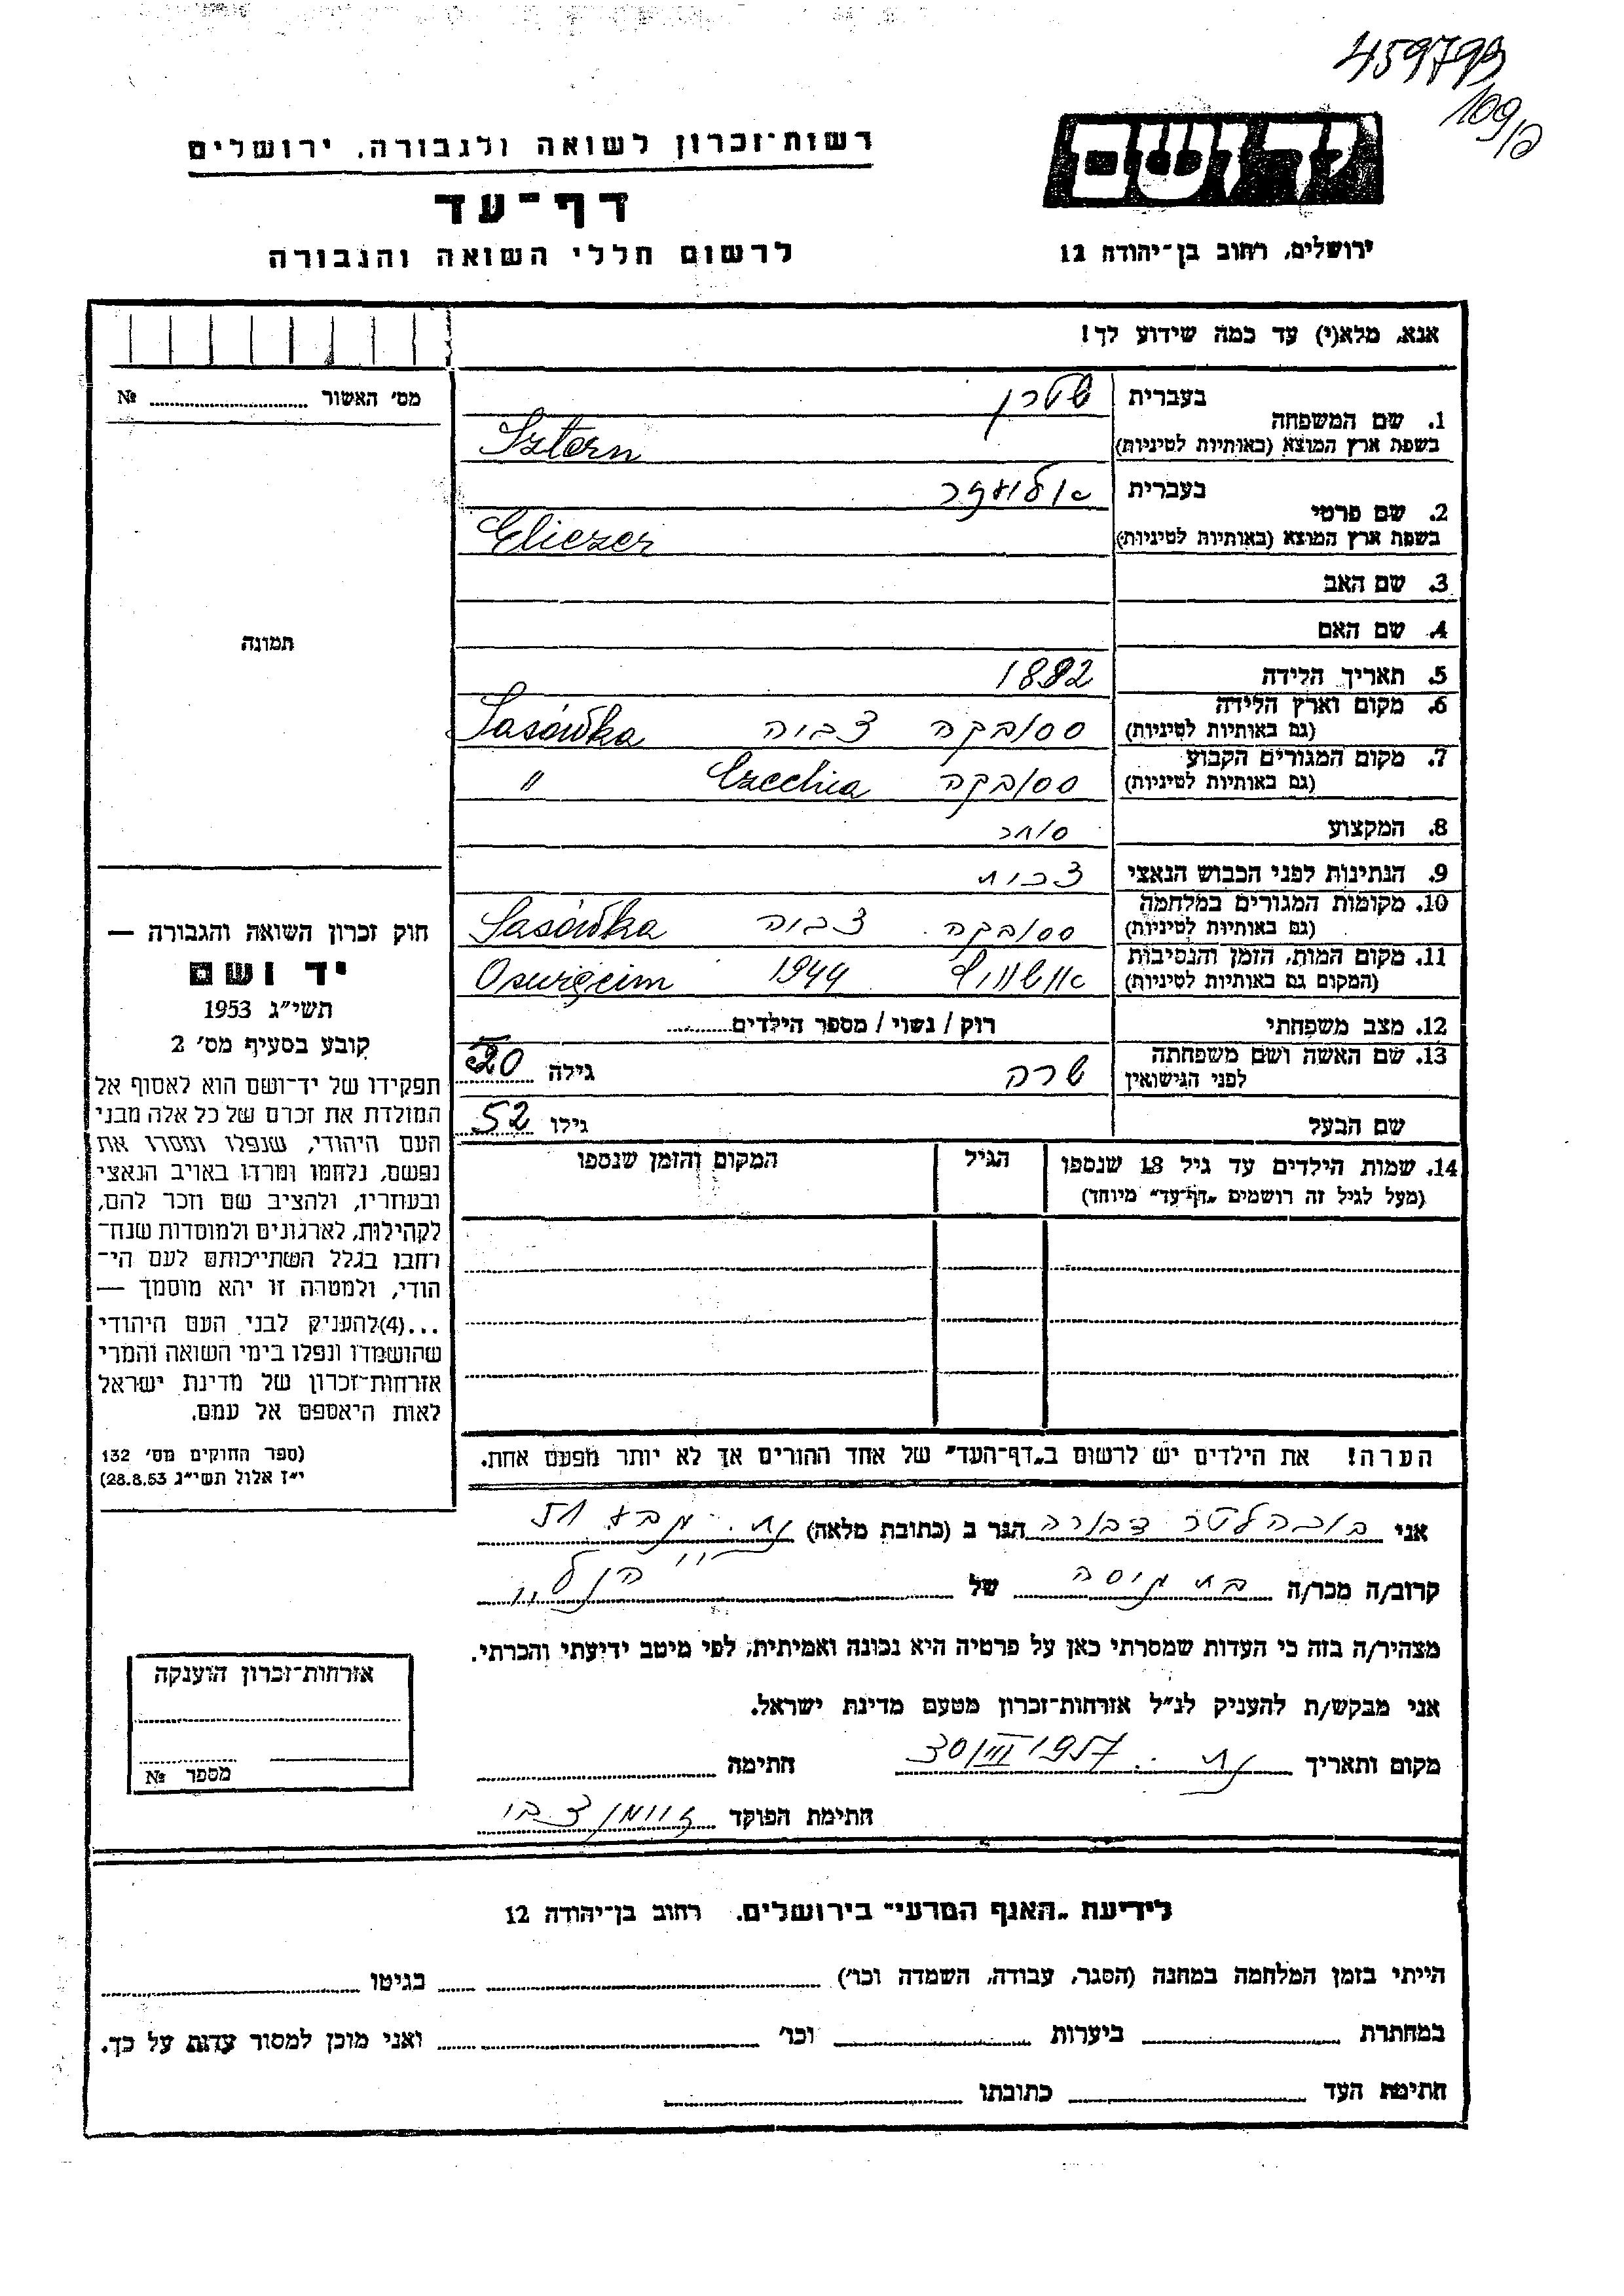 459793
109/
רשות־זכרון לשואה ולגבורה, ירושלים
יד ושם
דף־עד
לרשום חללי השואה והגבורה
ירושלים, רחוב בן־יהודה 12
אנא, מלא(י) עד כמה שידוע לך!
מס' האשור № 
1. שם המשפחה
בעברית שטרן
בשפת ארץ המוצא (באותיות לטיניות) Sztern
2. שם פרטי
בעברית
בשפת ארץ המוצא (באותיות לטיניות) Eliezer
3. שם האב
4. שם האם
תמונה
5. תאריך הלידה 1892
6. מקום וארץ הלידה
(גם באותיות לטיניות) ססובקה צכיה Sasówka
7. מקום המגורים הקבוע
(גם באותיות לטיניות) ססובקה Czechia "
8. המקצוע סוחר
9. הנתינות לפני הכבוש הנאצי צכית
10. מקומות המגורים במלחמה
(גם באותיות לטיניות) ססובקה צכיה Sasówka
11. מקום המות, הזמן והנסיבות
(המקום גם באותיות לטיניות) 1944 Oswięcim
12. מצב משפחתי רוק / נשוי / מספר הילדים
13. שם האשה ושם משפחתה
לפני הנישואין שרה גילה 50
שם הבעל גילו 52
14. שמות הילדים עד גיל 18 שנספו
(מעל לגיל זה רושמים „דף־עד” מיוחד)
הגיל
המקום והזמן שנספו
חוק זכרון השואה והגבורה —
יד ושם
תשי״ג 1953
קובע בסעיף מס' 2
תפקידו של יד־ושם הוא לאסוף אל
המולדת את זכרם של כל אלה מבני
העם היהודי, שנפלו ומסרו את
נפשם, נלחמו ומרדו באויב הנאצי
ובעוזריו, ולהציב שם וזכר להם,
לקהילות, לארגונים ולמוסדות שנח־
רחבו בגלל השתייכותם לעם הי־
הודי, ולמטרה זו יהא מוסמך —
...(4)להעניק לבני העם היהודי
שהושמדו ונפלו בימי השואה והמרי
אזרחות־זכרון של מדינת ישראל
לאות היאספם אל עמם.
(ספר החוקים מס' 132
י״ז אלול תשי״ג 28.8.53)
הערה! את הילדים יש לרשום ב„דף־העד” של אחד ההורים אך לא יותר מפעם אחת.
אני בוכהלטר דבורה הגר ב (כתובת מלאה)
קרוב/ה מכר/ה בת גיסה של הנ״ל
מצהיר/ה בזה כי העדות שמסרתי כאן על פרטיה היא נכונה ואמיתית, לפי מיטב ידיעתי והכרתי.
אני מבקש/ת להעניק לנ״ל אזרחות־זכרון מטעם מדינת ישראל.
מקום ותאריך 1957 חתימה
חתימת הפוקד
אזרחות־זכרון הוענקה
מספר №
לידיעת „האגף המדעי” בירושלים, רחוב בן־יהודה 12
הייתי בזמן המלחמה במחנה (הסגר, עבודה, השמדה וכו') בגיטו
במחתרת ביערות וכו' ואני מוכן למסור עדות על כך.
חתימת העד כתובתו